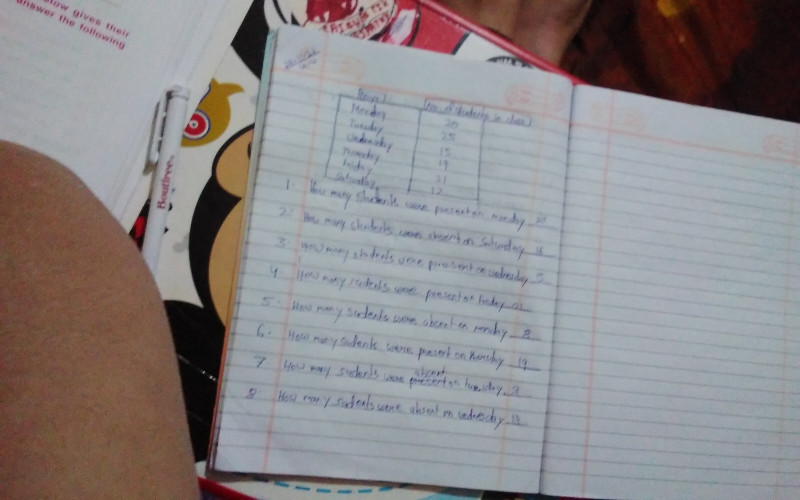 slow gives their
answer the following
No. of students in class
Monday 20
Tuesday 25
Wednesday 15
Thursday 19
Friday 21
Saturday 12
1. How many students were present on monday 20
2. How many students were absent on Saturday 16
3. How many students were present on wednesday
4. How many sudents were present on friday 21
5. How many sudents were absent on monday 8
6. How many sudents were present on thursday 19
absent
7 How many sudents were present on tuesday 3
8. How many sudents were absent on wednesday 13